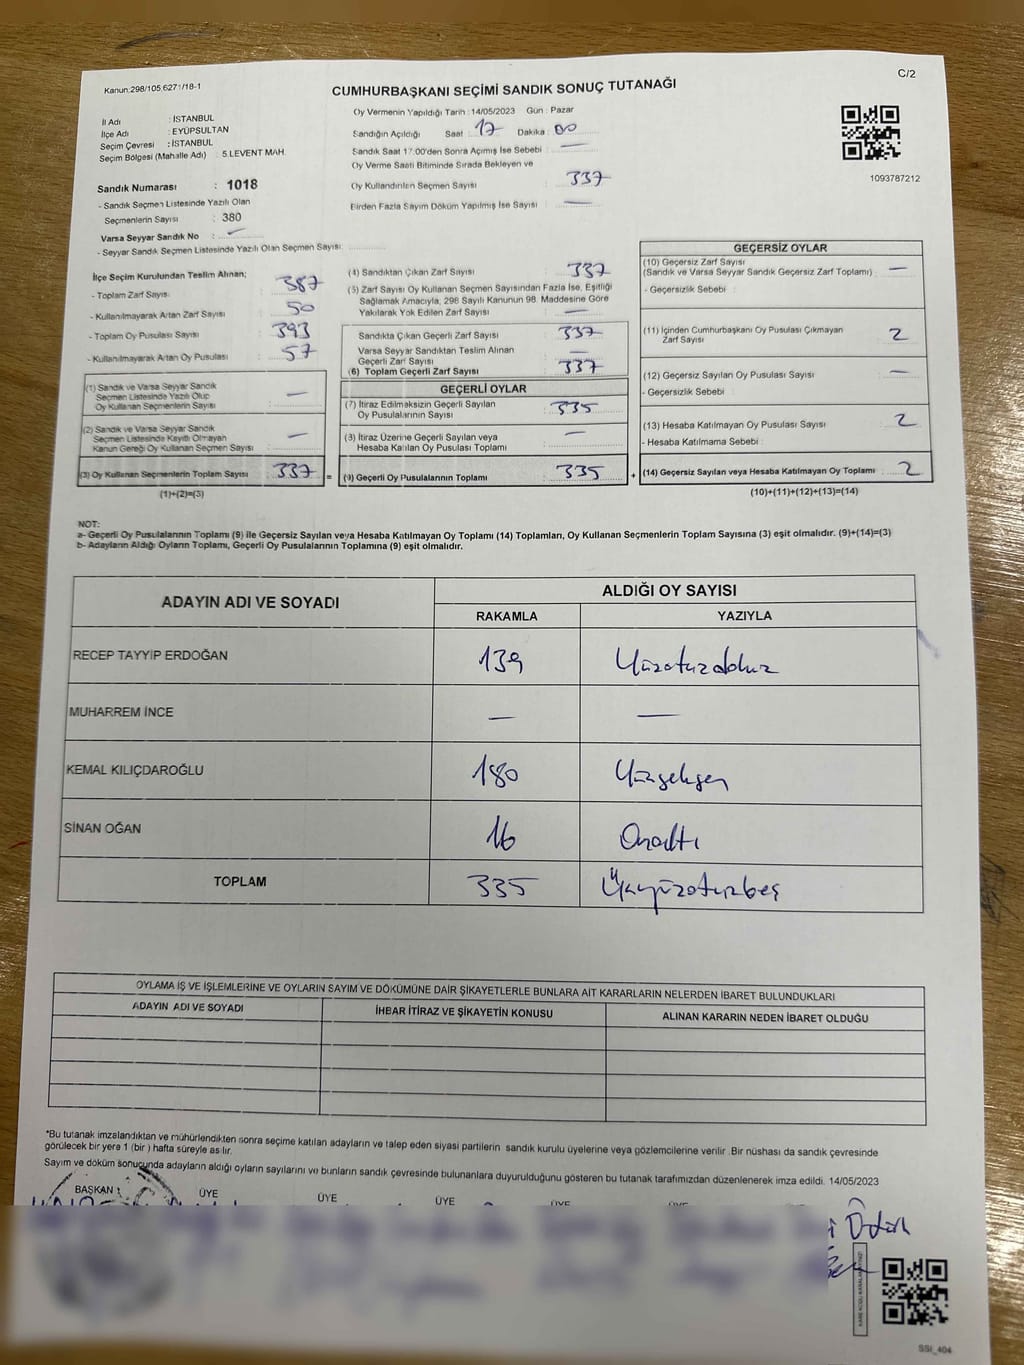 Kanun:298/105,6271/18-1
CUMHURBAŞKANI SEÇİMİ SANDIK SONUÇ TUTANAĞI
C/2
İl Adı : İSTANBUL
İlçe Adı : EYÜPSULTAN
Seçim Çevresi : İSTANBUL
Seçim Bölgesi (Mahalle Adı) : 5.LEVENT MAH.
Sandık Numarası : 1018
- Sandık Seçmen Listesinde Yazılı Olan
Seçmenlerin Sayısı : 380
Varsa Seyyar Sandık No : —
- Seyyar Sandık Seçmen Listesinde Yazılı Olan Seçmen Sayısı:
Oy Vermenin Yapıldığı Tarih : 14/05/2023 Gün : Pazar
Sandığın Açıldığı Saat : 17 Dakika : 00
Sandık Saat 17:00'den Sonra Açımış İse Sebebi : —
Oy Verme Saati Bitiminde Sırada Bekleyen ve
Oy Kullandırılan Seçmen Sayısı : 337
Birden Fazla Sayım Döküm Yapılmış İse Sayısı : —
1093787212
İlçe Seçim Kurulundan Teslim Alınan;
- Toplam Zarf Sayısı : 387
- Kullanılmayarak Artan Zarf Sayısı : 50
- Toplam Oy Pusulası Sayısı : 393
- Kullanılmayarak Artan Oy Pusulası : 57
(1) Sandık ve Varsa Seyyar Sandık
Seçmen Listesinde Yazılı Olup
Oy Kullanan Seçmenlerin Sayısı : —
(2) Sandık ve Varsa Seyyar Sandık
Seçmen Listesinde Kayıtlı Olmayan
Kanun Gereği Oy Kullanan Seçmen Sayısı : —
(3) Oy Kullanan Seçmenlerin Toplam Sayısı : 337 =
(1)+(2)=(3)
(4) Sandıktan Çıkan Zarf Sayısı : 337
(5) Zarf Sayısı Oy Kullanan Seçmen Sayısından Fazla İse, Eşitliği
Sağlamak Amacıyla, 298 Sayılı Kanunun 98. Maddesine Göre
Yakılarak Yok Edilen Zarf Sayısı : —
Sandıkta Çıkan Geçerli Zarf Sayısı : 337
Varsa Seyyar Sandıktan Teslim Alınan
Geçerli Zarf Sayısı : —
(6) Toplam Geçerli Zarf Sayısı : 337
GEÇERLİ OYLAR
(7) İtiraz Edilmeksizin Geçerli Sayılan
Oy Pusulalarının Sayısı : 335
(8) İtiraz Üzerine Geçerli Sayılan veya
Hesaba Katılan Oy Pusulası Toplamı : —
(9) Geçerli Oy Pusulalarının Toplamı : 335 +
GEÇERSİZ OYLAR
(10) Geçersiz Zarf Sayısı
(Sandık ve Varsa Seyyar Sandık Geçersiz Zarf Toplamı) : —
- Geçersizlik Sebebi :
(11) İçinden Cumhurbaşkanı Oy Pusulası Çıkmayan
Zarf Sayısı : 2
(12) Geçersiz Sayılan Oy Pusulası Sayısı : —
- Geçersizlik Sebebi :
(13) Hesaba Katılmayan Oy Pusulası Sayısı : 2
- Hesaba Katılmama Sebebi :
(14) Geçersiz Sayılan veya Hesaba Katılmayan Oy Toplamı : 2
(10)+(11)+(12)+(13)=(14)
NOT:
a- Geçerli Oy Pusulalarının Toplamı (9) ile Geçersiz Sayılan veya Hesaba Katılmayan Oy Toplamı (14) Toplamları, Oy Kullanan Seçmenlerin Toplam Sayısına (3) eşit olmalıdır. (9)+(14)=(3)
b- Adayların Aldığı Oyların Toplamı, Geçerli Oy Pusulalarının Toplamına (9) eşit olmalıdır.
ADAYIN ADI VE SOYADI
ALDIĞI OY SAYISI
RAKAMLA YAZIYLA
RECEP TAYYİP ERDOĞAN 139 Yüzotuzdokuz
MUHARREM İNCE — —
KEMAL KILIÇDAROĞLU 180 Yüzseksen
SİNAN OĞAN 16 Onaltı
TOPLAM 335 Üçyüzotuzbeş
OYLAMA İŞ VE İŞLEMLERİNE VE OYLARIN SAYIM VE DÖKÜMÜNE DAİR ŞİKAYETLERLE BUNLARA AİT KARARLARIN NELERDEN İBARET BULUNDUKLARI
ADAYIN ADI VE SOYADI İHBAR İTİRAZ VE ŞİKAYETİN KONUSU ALINAN KARARIN NEDEN İBARET OLDUĞU
*Bu tutanak imzalandıktan ve mühürlendikten sonra seçime katılan adayların ve talep eden siyasi partilerin sandık kurulu üyelerine veya gözlemcilerine verilir .Bir nüshası da sandık çevresinde
görülecek bir yere 1 (bir ) hafta süreyle asılır.
Sayım ve döküm sonucunda adayların aldığı oyların sayılarını ve bunların sandık çevresinde bulunanlara duyurulduğunu gösteren bu tutanak tarafımızdan düzenlenerek imza edildi. 14/05/2023
BAŞKAN ÜYE ÜYE ÜYE ÜYE ÜYE
SSI_404